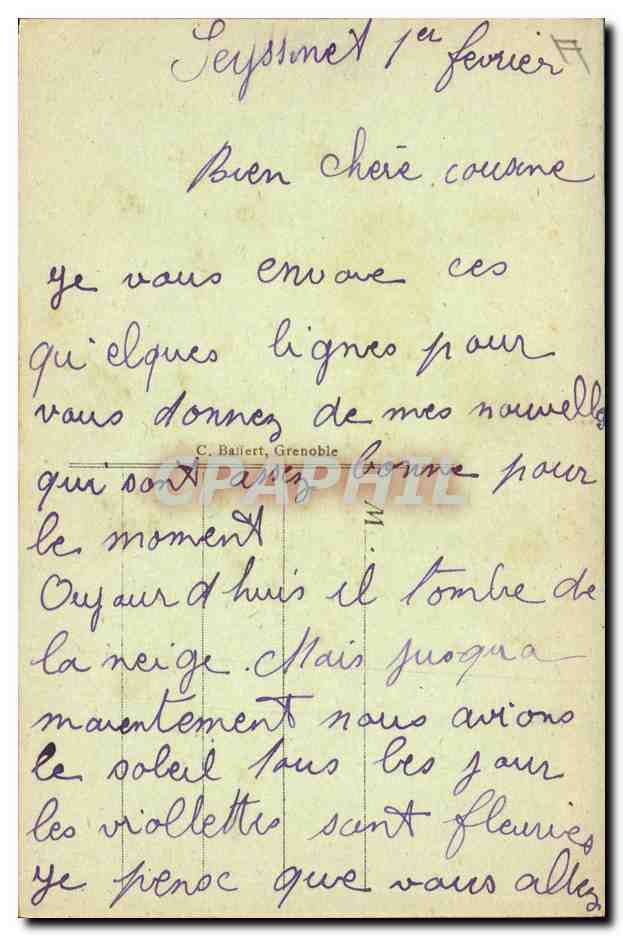 Seyssinet 1er fevrier
Bien chère cousine
Je vous envoie ces
qu'elques lignes pour
vous donnez de mes nouvelles
C. Baffert, Grenoble
qui sont assez bonne pour
CPAPHIL
M.
le moment
Oujourd'huis il tombe de
la neige. Mais jusqua
maientement nous avions
le soleil tous les jour
les viollettes sont fleuries
Je pense que vous allez